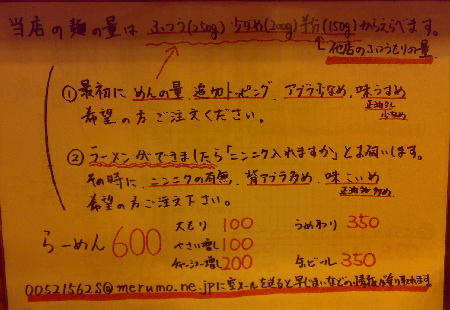 当店の麺の量は ふつう(250g) 少なめ(200g) 半分(150g)からえらべます。
他店のふつうもりの量
①最初に めんの量、追加トッピング、アブラ少なめ、味うすめ
正油タレ少なめ
希望の方ご注文ください。
②ラーメンができましたら「ニンニク入れますか」とお伺いします。
その時に、ニンニクの有無、背アブラ多め、味こいめ
正油タレ多め
希望の方ご注文下さい。
らーめん 600
大もり 100
やさい増し 100
チャーシュー増し 200
うめわり 350
缶ビール 350
00521562s@merumo.ne.jpに空メールを送ると早じまいなどの情報が受け取れます。